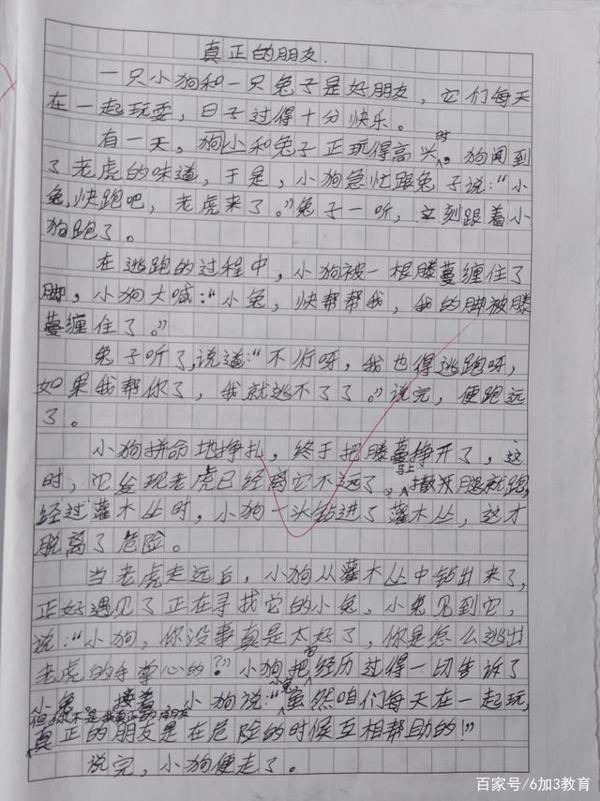 真正的朋友.
一只小狗和一只兔子是好朋友，它们每天
在一起玩耍，日子过得十分快乐。
有一天，狗小和兔子正玩得高兴时，狗闻到
了老虎的味道，于是，小狗急忙跟兔子说：“小
兔，快跑吧，老虎来了。”兔子一听，立刻跟着小
狗跑了。
在逃跑的过程中，小狗被一根藤蔓缠住了
脚，小狗大喊：“小兔，快帮帮我，我的脚被藤
蔓缠住了。”
兔子听了，说道：“不行呀，我也得逃跑呀，
如果我帮你了，我就逃不了了。”说完，便跑远
了。
小狗拼命地挣扎，终于把藤蔓挣开了，这
时，它发现老虎已经离它不远了，马上撒开腿就跑，
经过灌木丛时，小狗一头钻进了灌木丛，这才
脱离了危险。
当老虎走远后，小狗从灌木丛中钻出来了，
正好遇见了正在寻找它的小兔，小兔见到它，
说：“小狗，你没事真是太好了，你是怎么逃出
老虎的手掌心的？”小狗把经历过得一切告诉了
小兔 接着，小狗说：“小兔虽然咱们每天在一起玩，
但你不是我真正的朋友
真正的朋友是在危险的时候互相帮助的！”
说完，小狗便走了。
百家号/6加3教育